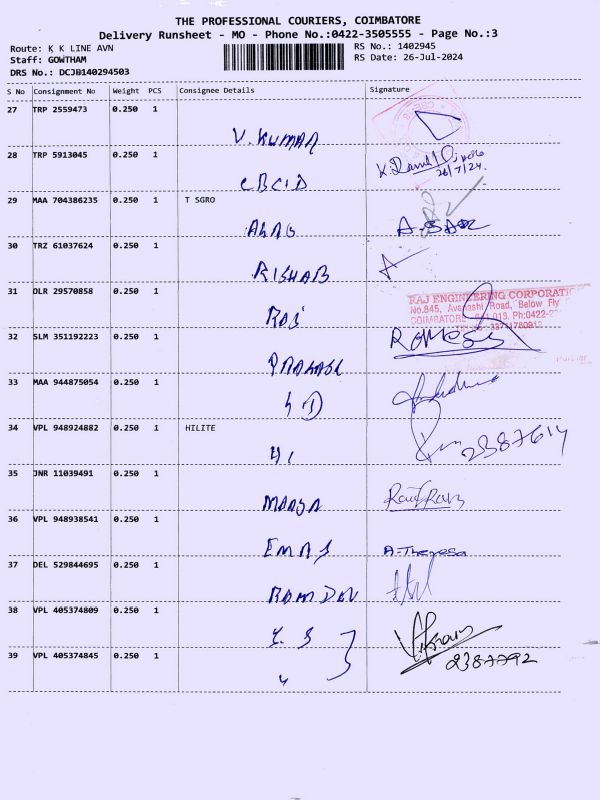 THE PROFESSIONAL COURIERS, COIMBATORE
Delivery Runsheet - MO - Phone No.:0422-3505555 - Page No.:3
Route: K K LINE AVN
RS No.: 1402945
Staff: GOWTHAM
RS Date: 26-Jul-2024
DRS No.: DCJB140294503
S No Consignment No Weight PCS Consignee Details Signature
27 TRP 2559473 0.250 1
V. KUMAR
28 TRP 5913045 0.250 1
26/7/24.
CBCID
29 MAA 704386235 0.250 1 T SGRO
30 TRZ 61037624 0.250 1
RISHAB
31 DLR 29570858 0.250 1
RAJ ENGINEERING CORPORATI
No.845, Avanashi Road, Below Fly
COIMBATORE
RAJ
32 SLM 351192223 0.250 1
RAMESH
PRAKASH
33 MAA 944875054 0.250 1
34 VPL 948924882 0.250 1 HILITE
2387614
35 JNR 11039491 0.250 1
36 VPL 948938541 0.250 1
A. Theresa
37 DEL 529844695 0.250 1
38 VPL 405374809 0.250 1
39 VPL 405374845 0.250 1
2387792